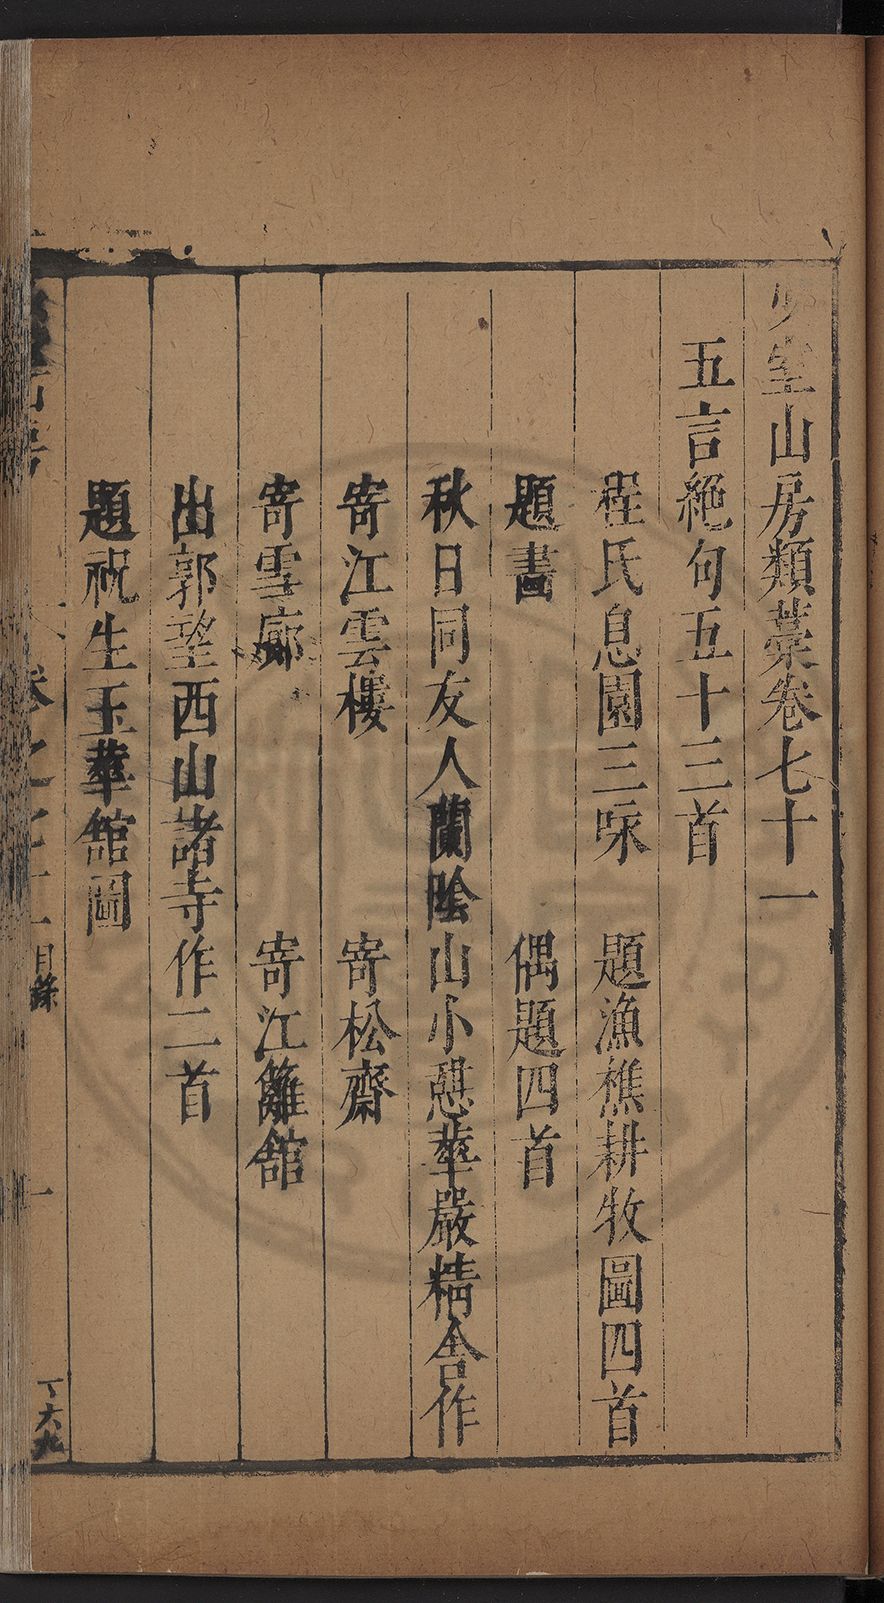 少室山房類藁卷七十一
五言絕句五十三首
程氏息園三咏　題漁樵耕牧圖四首
題畫　偶題四首
秋日同友人蘭陰山小憩華嚴精舍作
寄江雲樓　寄松齋
寄雲廊　寄江籬館
出郭望西山諸寺作二首
題祝生玉華館圖
卷之七十一目錄　一　丁六九